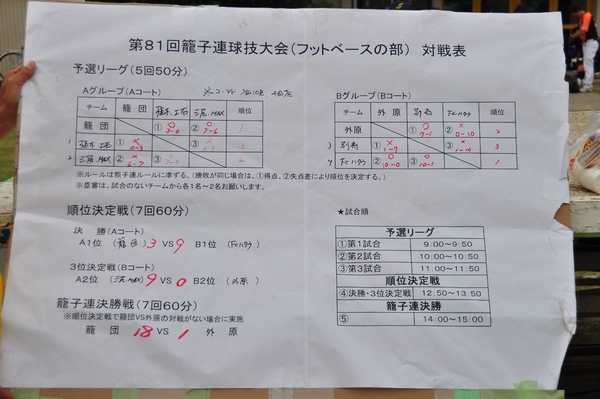 第81回籠子連球技大会(フットベースの部) 対戦表
予選リーグ(5回50分)
Aグループ(Aコート)
チーム 籠団 三原.MAX 順位
籠団 ① 〇 ② 〇 7-6 1
① × ③
三原.MAX ② × 6-7 ③ 2
Bグループ(Bコート)
チーム 外原 別有 Fcハタケ 順位
外原 ① 〇 7-1 ② × 0-10 2
3 別有 ① × 1-7 ③ × 1-10 3
4 Fcハタケ ② 〇 10-0 ③ 〇 10-1 1
※ルールは熊子連ルールに準ずる。(勝敗が同じ場合は、①得点、②失点差により順位を決定する。)
※塁審は、試合のないチームから各1名~2名お願いします。
順位決定戦(7回60分)
決 勝(Aコート)
A1位 (籠団) 3 VS 9 B1位 (Fcハタケ)
3位決定戦(Bコート)
A2位 (三原.MAX) 9 VS 0 B2位 (外原)
籠子連決勝戦(7回60分)
※順位決定戦で籠団VS外原の対戦がない場合に実施
籠 団 18 VS 1 外 原
★試合順
予選リーグ
①第1試合 9:00~9:50
②第2試合 10:00~10:50
③第3試合 11:00~11:50
順位決定戦
④決勝・3位決定戦 12:50~13:50
籠子連決勝
⑤ 14:00~15:00